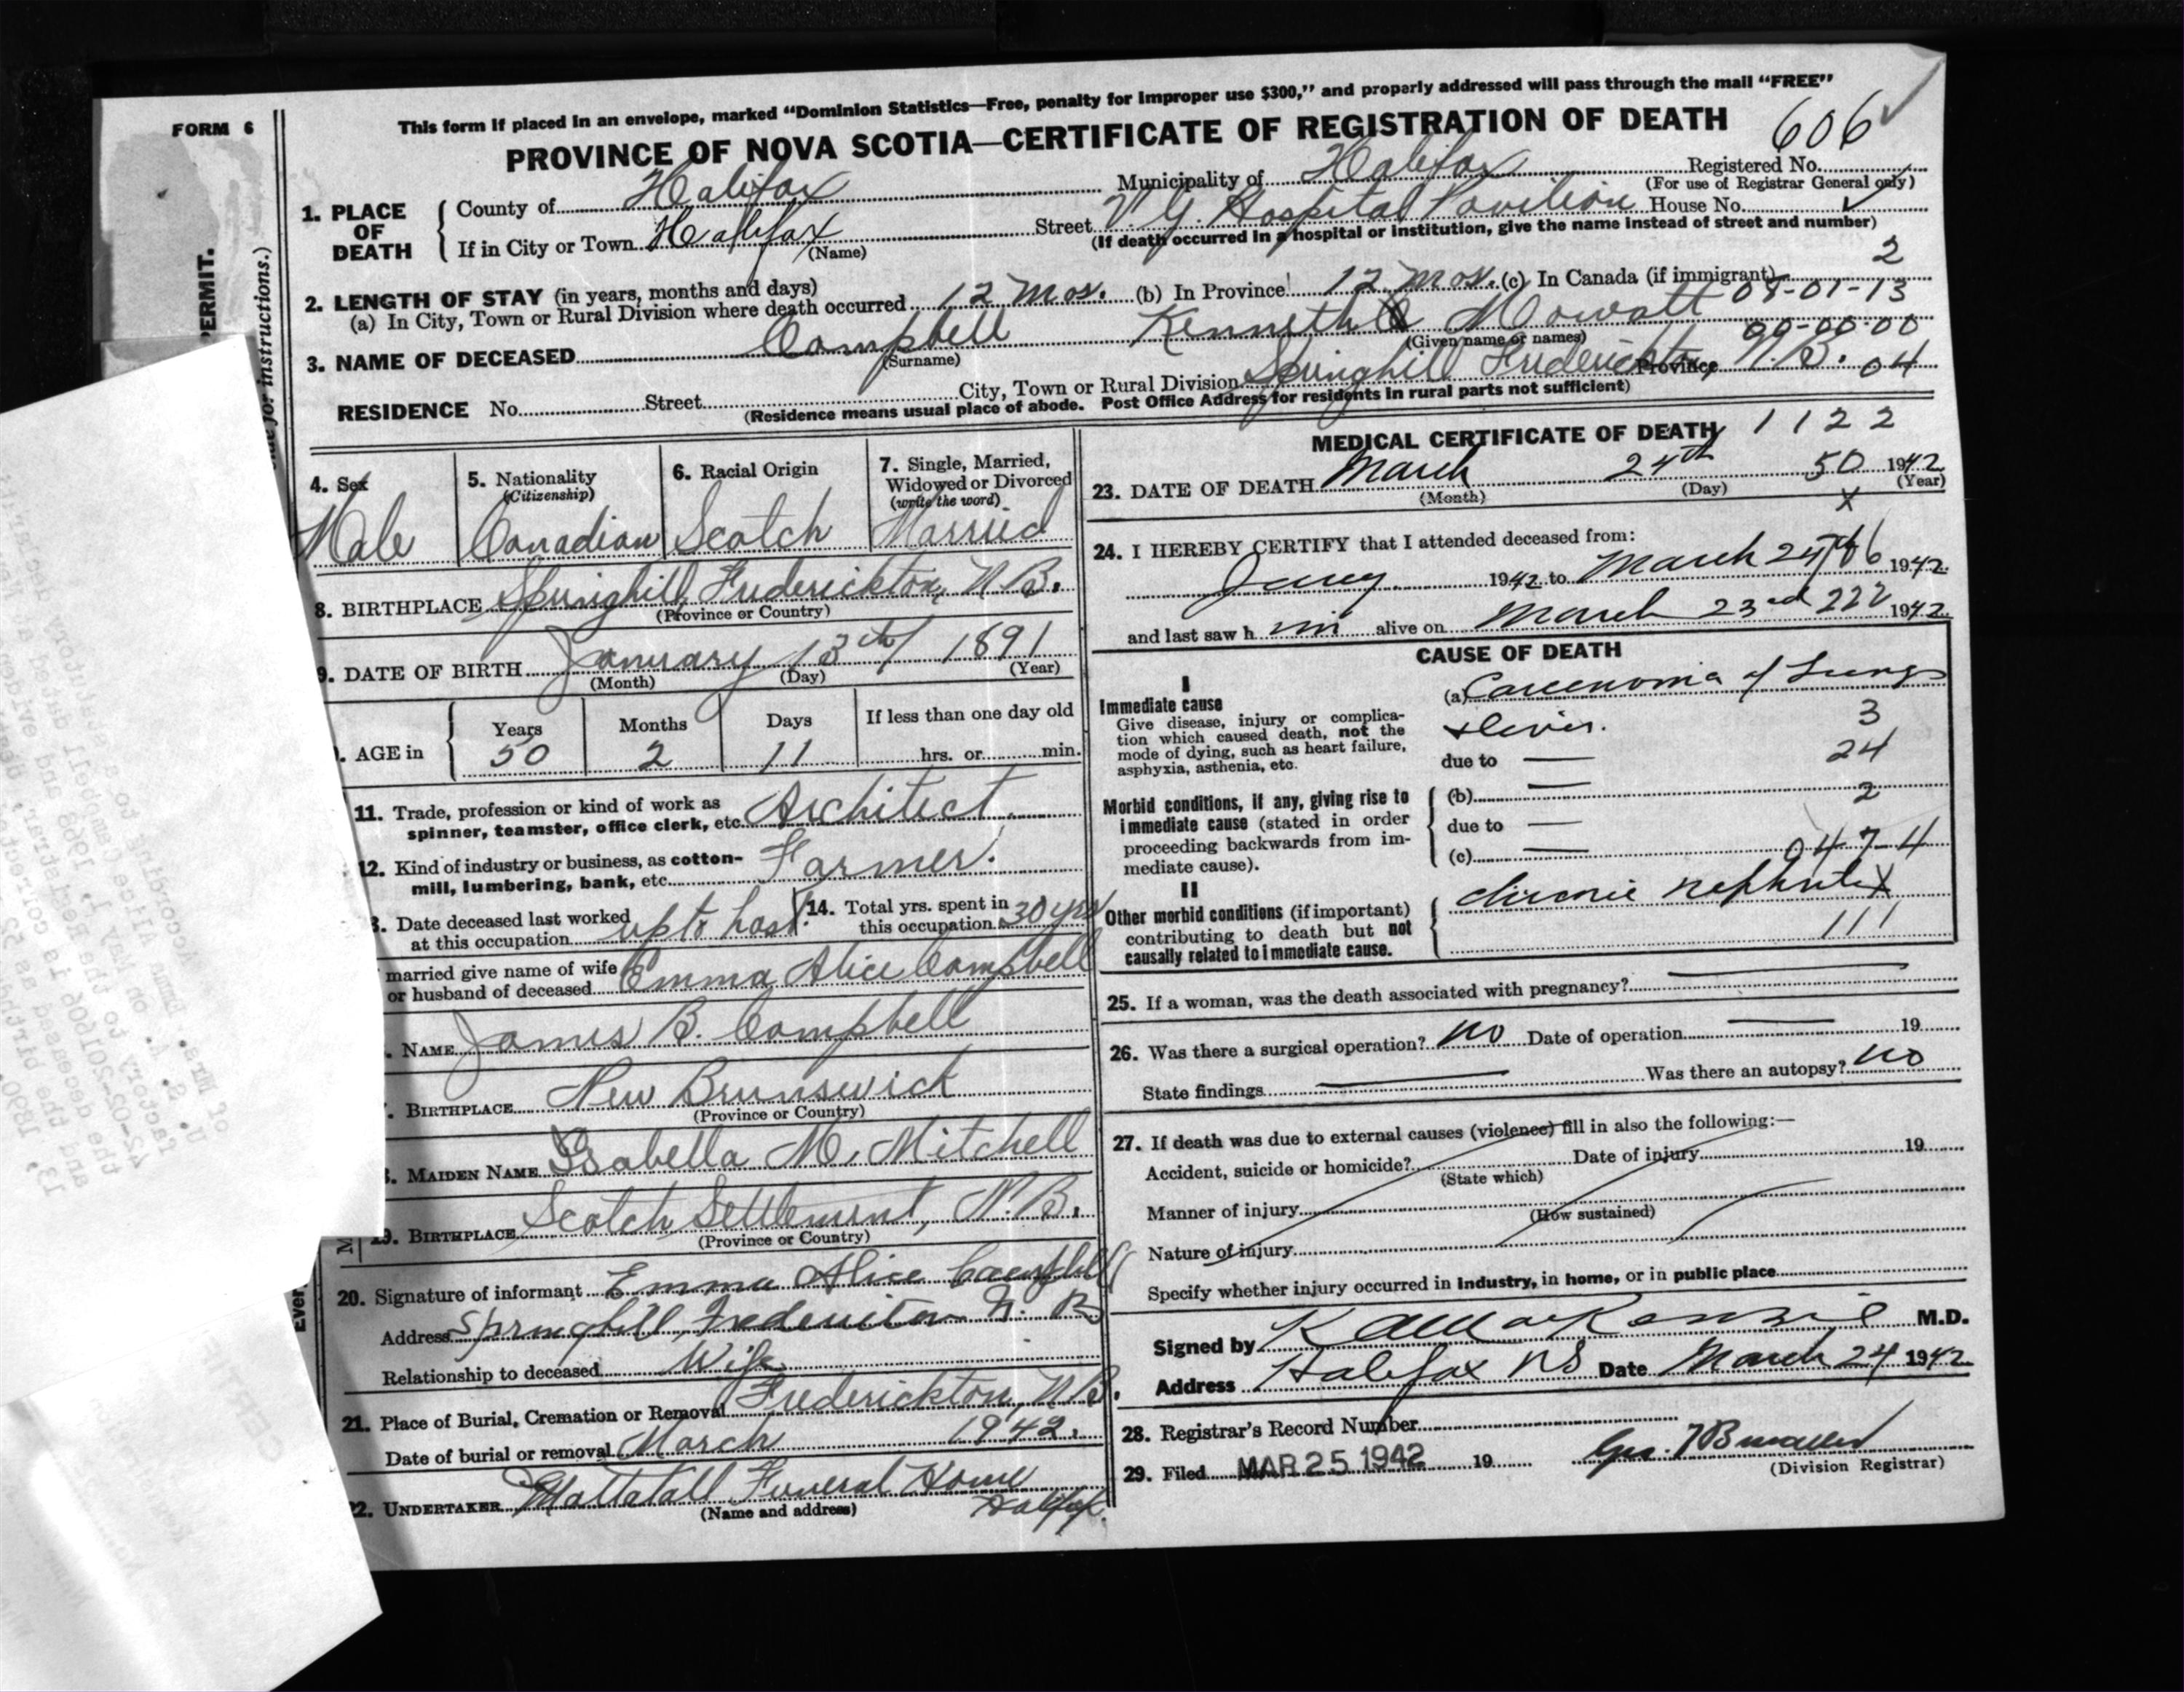 FORM 6
This form if placed in an envelope, marked "Dominion Statistics—Free, penalty for improper use $300," and properly addressed will pass through the mail "FREE"
PROVINCE OF NOVA SCOTIA—CERTIFICATE OF REGISTRATION OF DEATH
606
Registered No.
(For use of Registrar General only)
PERMIT.
for instructions.)
1. PLACE OF DEATH
County of Halifax Municipality of Halifax
If in City or Town Halifax Street V. G. Hospital Pavilion House No.
(Name) (If death occurred in a hospital or institution, give the name instead of street and number)
2
2. LENGTH OF STAY (in years, months and days)
(a) In City, Town or Rural Division where death occurred 12 mos. (b) In Province 12 mos. (c) In Canada (if immigrant)
08-01-13
3. NAME OF DECEASED Campbell Kenneth Mowatt
(Surname) (Given name or names)
00-00-00
RESIDENCE No. Street City, Town or Rural Division Springhill Frederickton, Province N.B. 04
(Residence means usual place of abode. Post Office Address for residents in rural parts not sufficient)
4. Sex
Male
5. Nationality
(Citizenship)
Canadian
6. Racial Origin
Scotch
7. Single, Married, Widowed or Divorced
(write the word)
Married
8. BIRTHPLACE Springhill, Frederickton, N.B.
(Province or Country)
9. DATE OF BIRTH January 13th 1891
(Month) (Day) (Year)
. AGE in
Years Months Days If less than one day old
50 2 11 hrs. or min.
11. Trade, profession or kind of work as
spinner, teamster, office clerk, etc. Architect.
12. Kind of industry or business, as cotton-
mill, lumbering, bank, etc. Farmer.
3. Date deceased last worked
at this occupation up to hosp.
14. Total yrs. spent in
this occupation 30 yrs
married give name of wife
or husband of deceased Emma Alice Campbell
. NAME James B. Campbell
. BIRTHPLACE New Brunswick
(Province or Country)
. MAIDEN NAME Isabella M. Mitchell
19. BIRTHPLACE Scotch Settlement, N.B.
(Province or Country)
Ever
20. Signature of informant Emma Alice Campbell
Address Springhill Fredericton N. B
Relationship to deceased Wife
21. Place of Burial, Cremation or Removal Frederickton, N.B.
Date of burial or removal March 1942.
22. UNDERTAKER Mattatall Funeral Home
(Name and address) Halifax.
MEDICAL CERTIFICATE OF DEATH 1 1 2 2
23. DATE OF DEATH March 24th 50 1942
(Month) (Day) (Year)
X
24. I HEREBY CERTIFY that I attended deceased from:
1942 to March 24th 06 1942
and last saw him alive on March 23rd 222 1942
CAUSE OF DEATH
I
Immediate cause
Give disease, injury or complica-
tion which caused death, not the
mode of dying, such as heart failure,
asphyxia, asthenia, etc.
(a) Carcenoma of Lungs
+ liver. 3
due to — 24
Morbid conditions, if any, giving rise to
immediate cause (stated in order
proceeding backwards from im-
mediate cause).
(b) — 2
due to —
(c) — 047-4
II
Other morbid conditions (if important)
contributing to death but not
causally related to immediate cause.
chronic nephritis
111
25. If a woman, was the death associated with pregnancy?
26. Was there a surgical operation? no Date of operation 19
State findings Was there an autopsy? no
27. If death was due to external causes (violence) fill in also the following:—
Accident, suicide or homicide? Date of injury 19
(State which)
Manner of injury
(How sustained)
Nature of injury
Specify whether injury occurred in industry, in home, or in public place
Signed by MacKenzie M.D.
Address Halifax NS Date March 24 1942
28. Registrar's Record Number
29. Filed MAR 25 1942 19
(Division Registrar)